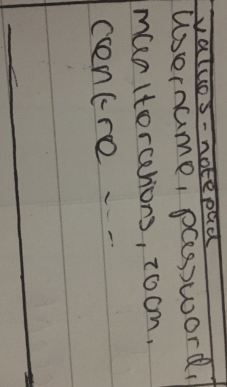 values-notepad
Username, password,
max iterations, zoom,
centre ---